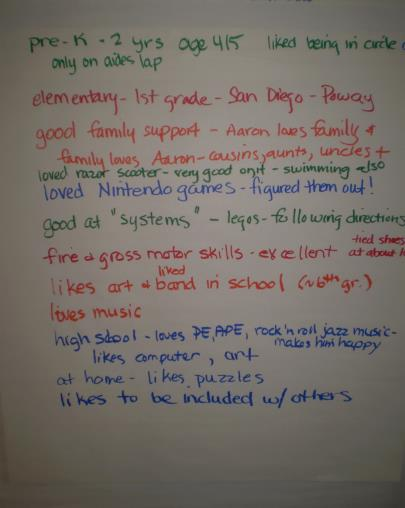 pre-K - 2 yrs age 4/5 liked being in circle
only on aides lap
elementary - 1st grade - San Diego - Poway
good family support - Aaron loves family &
family loves Aaron - cousins, aunts, uncles +
loved razor scooter - very good on it - swimming also
loved Nintendo games - figured them out!
good at "systems" - legos - following directions
fine & gross motor skills - excellent tied shoes at about
likes art & liked band in school (~6th gr.)
loves music
high school - loves PE, APE, rock'n roll jazz music -
makes him happy
likes computer, art
at home - likes puzzles
likes to be included w/ others